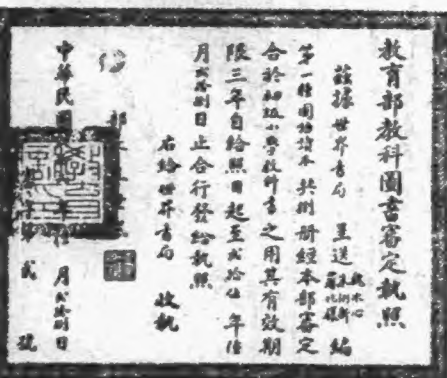 教育部教科圖書審定執照
茲據世界書局 呈送 魏冰心 編
第一種國語讀本 共捌册經本部審定
合於初級小學教科書之用其有效期
限三年自給照日起至貳拾伍年伍
月貳拾捌日止合行發給執照
右給世界書局 收執
部
中華民國 月貳拾捌日
第 貳 號